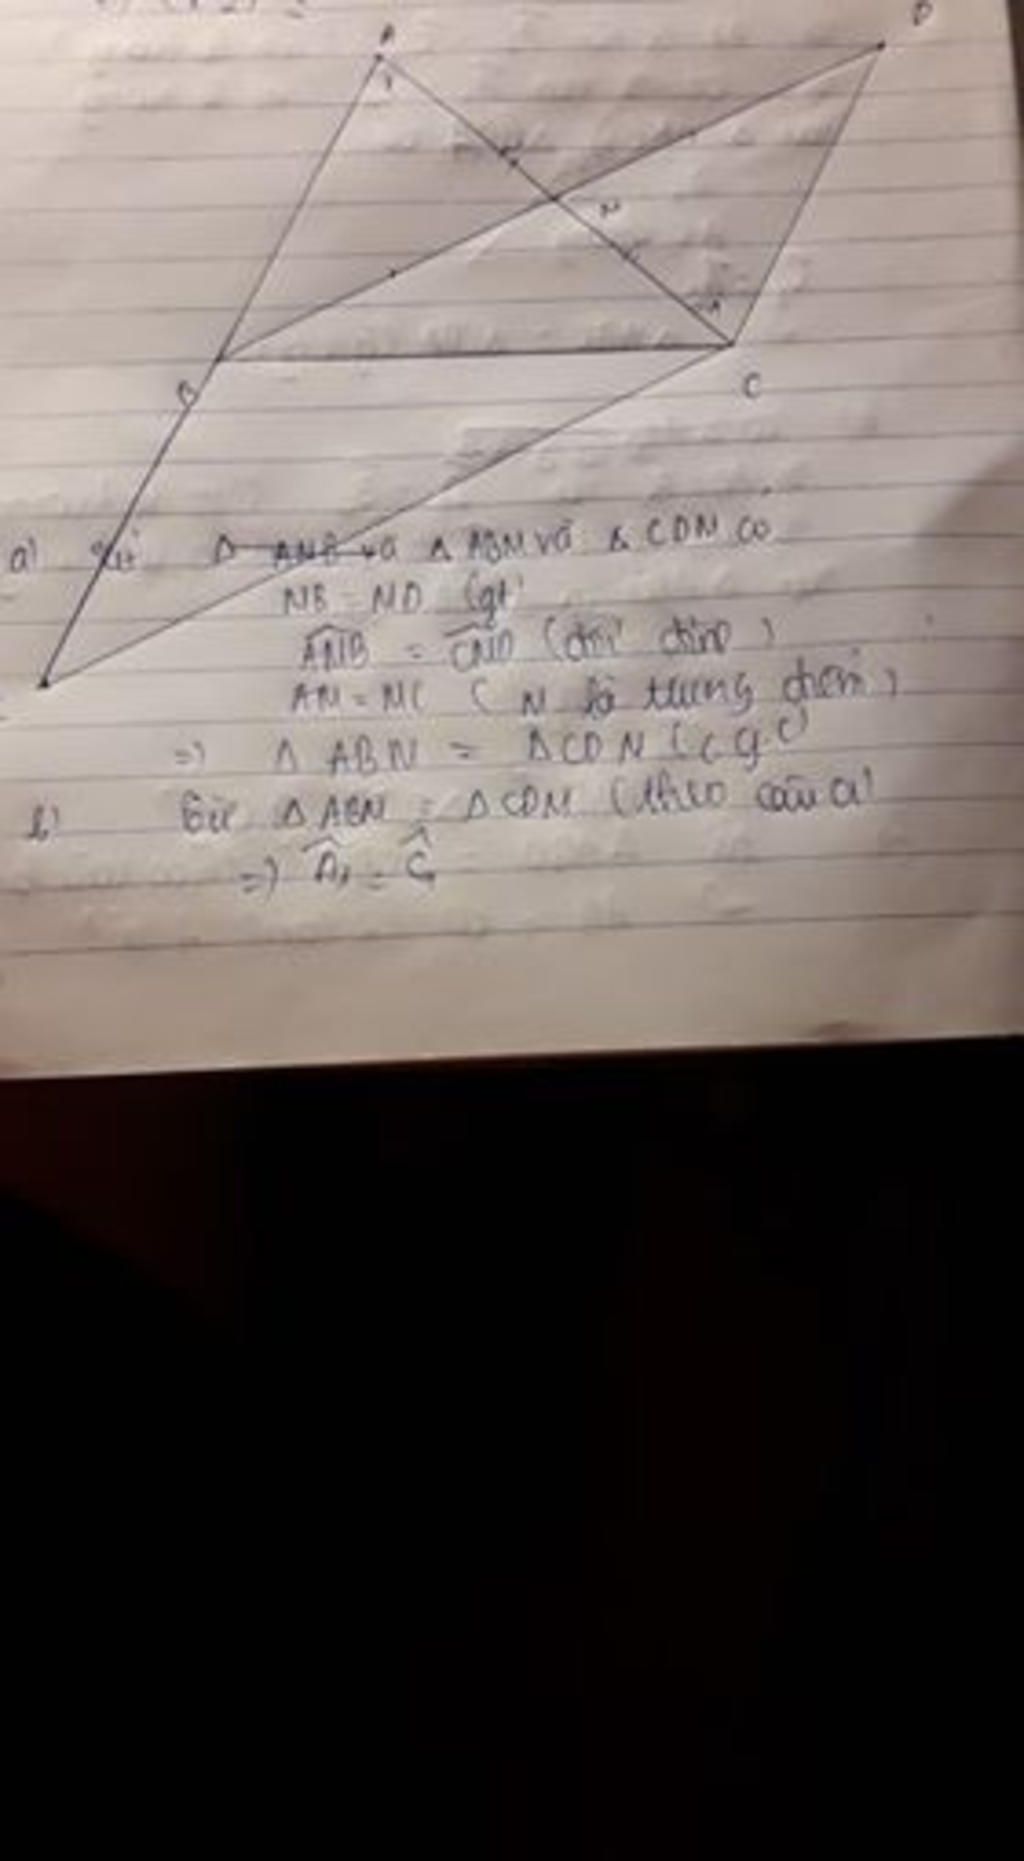 A
D
1
N
1
B
C
a) Xét Δ ANB và Δ ABN và Δ CDN có
NB = ND (gt)
ANB = CND (đối đỉnh)
AN = NC ( N là trung điểm )
=> Δ ABN = Δ CDN (c g c)
b) Δ ABN = Δ CDN (theo câu a)
=> Â₁ = Ĉ₁